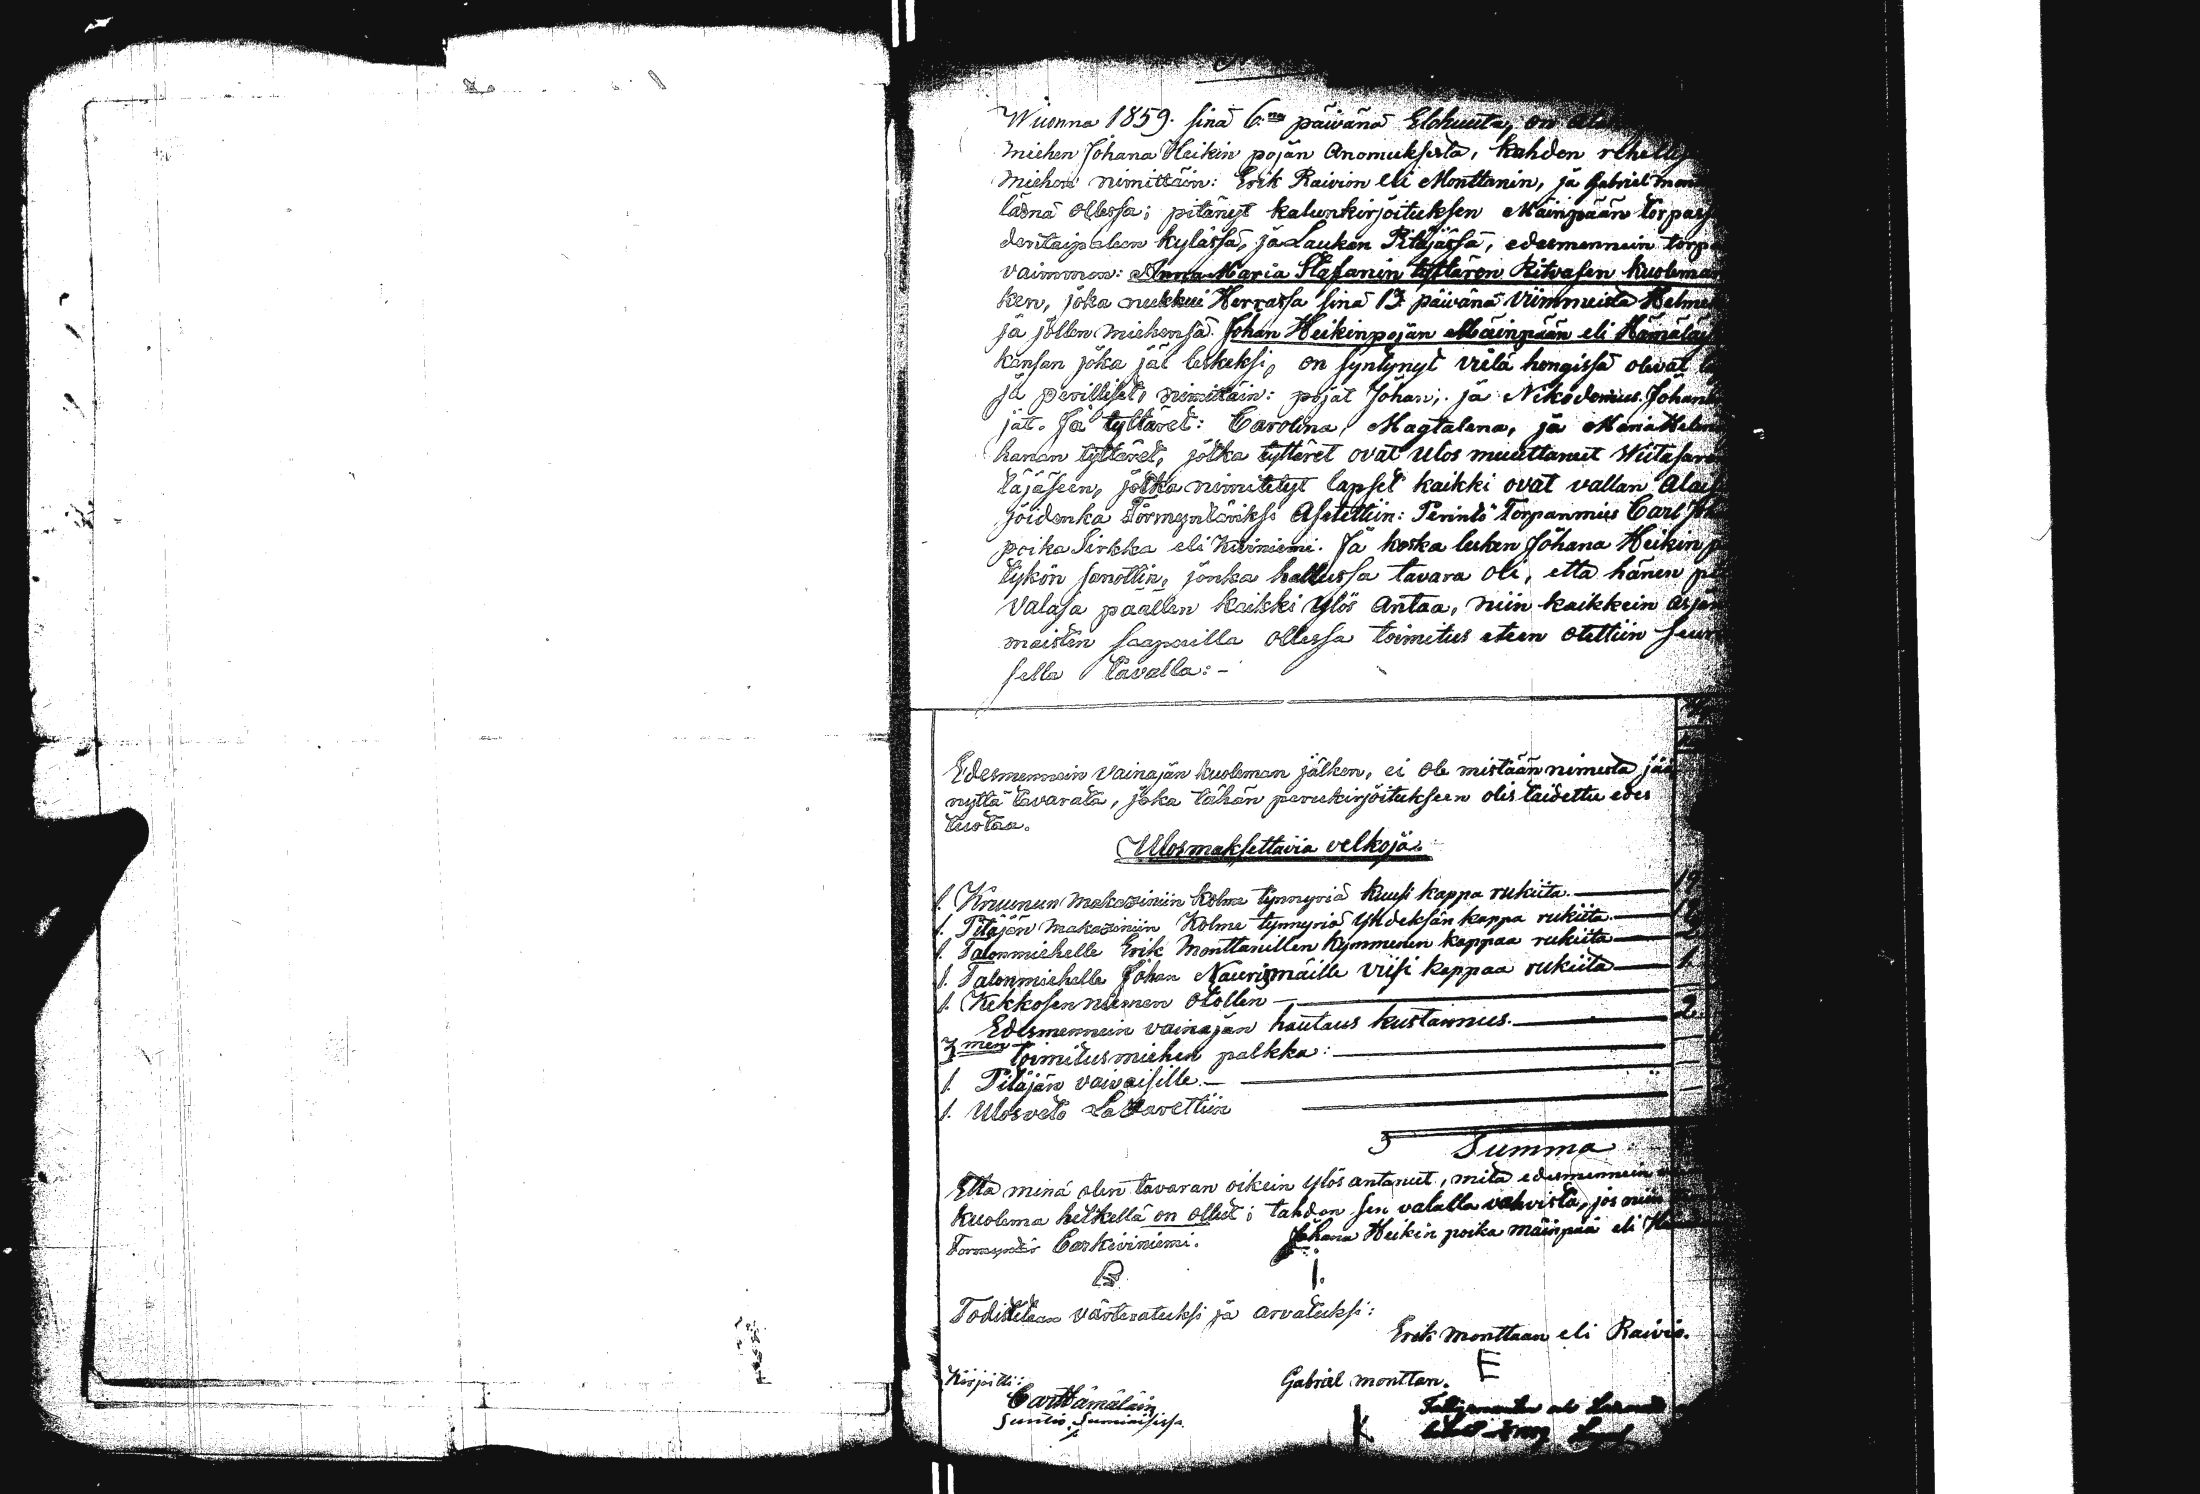 Wuonna 1859. sinä 6:na päivänä Elokuuta, on
miehen Johana Heikin pojan Anomuksesta, kahden rehelly
miehen nimittäin: Erik Raivion eli Monttanin, ja Gabriel mon
läsnä ollessa; pitänyt kalunkirjoituksen Mäinpään torpas
dentaipaleen kylässä, ja Laukan Pitäjässä, edesmennein torpa
vaimmon: Anna Maria Stafanin tyttären Ritvasen kuoleman
ken, joka nukkui Herrassa sinä 13 päivänä viimmeista Helme
ja jollen miehensä Johan Heikinpojan Mäinpään eli Hämäläi
kansan joka jäi leskeksi, on syntynyt vielä hengissä olevat
ja perilliset, nimittäin: pojat Johan; ja Nikodemus. Johan
jat. Ja tyttäret: Carolina, Magtalena, ja Maria Helen
hanan tyttäret, jotka tyttäret ovat ulos muuttanut Wiitasare
täjäseen, jotka nimitetyt lapset kaikki ovat vallan Alai
joidenka Förmyntäriksi Asetettiin: Perintö Torpanmies Carl
poika Sirkka eli Kiviniemi. Ja koska lesken Johana Heikin p
tykön sanottin, jonka hallussa tavara oli, että hänen pi
valasa paallen kaikki ylös Antaa, niin kaikkein asjan
maisten saapuilla ollessa toimitus eteen otettiin seur
sella tavalla:-
Edesmennein vainajan kuoleman jälken, ei ole mistään nimesta jää
nyttä tavarata, joka tähän perukirjoitukseen olis taidettu edes
tuotaa.
Ulosmaksettavia velkoja.
1. Kruunun makasiniin kolme tynnyriä kuusi kappa rukiita 19
1. Pitäjän makasiniin Kolme tynnyriä yhdeksän kappa rukiita
1. Talonmiehelle Erik Monttanillen kymmenen kappaa rukiita 2
1. Talonmiehelle Johan Naurismäille viisi kappaa rukiita 1
1. Kekkosen niemen otollen
Edesmennein vainajan hautaus kustannus. 2
3 men toimitusmiehen palkka:
1. Pitäjän vaivaisille.
1. Ulosveto Latzarettiin
Summa
Että minä olen tavaran oikein ylös antanut, mitä edesmennein
kuolema hetkellä on ollut; tahdon sen valalla vahvista, jos niin
Formyndär Carl Kiviniemi. Johana Heikin poika mäinpää eli
Todistetaan värteratuksi ja arvatuksi:
Erik Monttaan eli Raivio.
E
Kirjoitti: Gabriel monttan.
Carl Hämäläin
Suntio Sumiaisissa
K